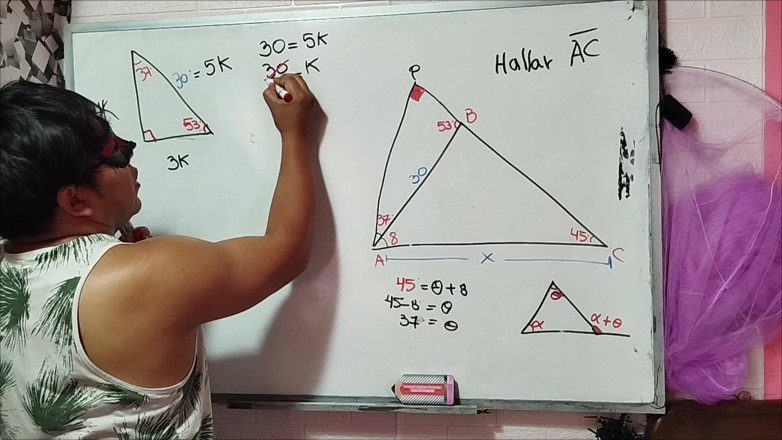 30 = 5K
30 = K
37
30 = 5K
53
K
3K
Hallar AC
P
B
53
30
37
8
45
A
x
C
45 = θ + 8
45 - 8 = θ
37 = θ
θ
α
α + θ